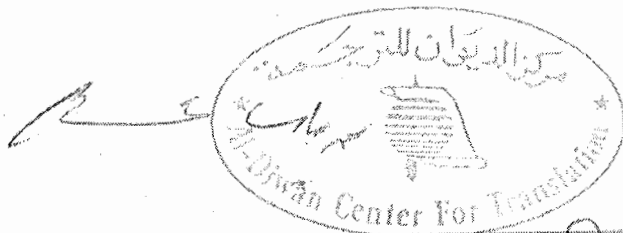 مركز الديوان للترجمة
Al-Diwan Center For Translation